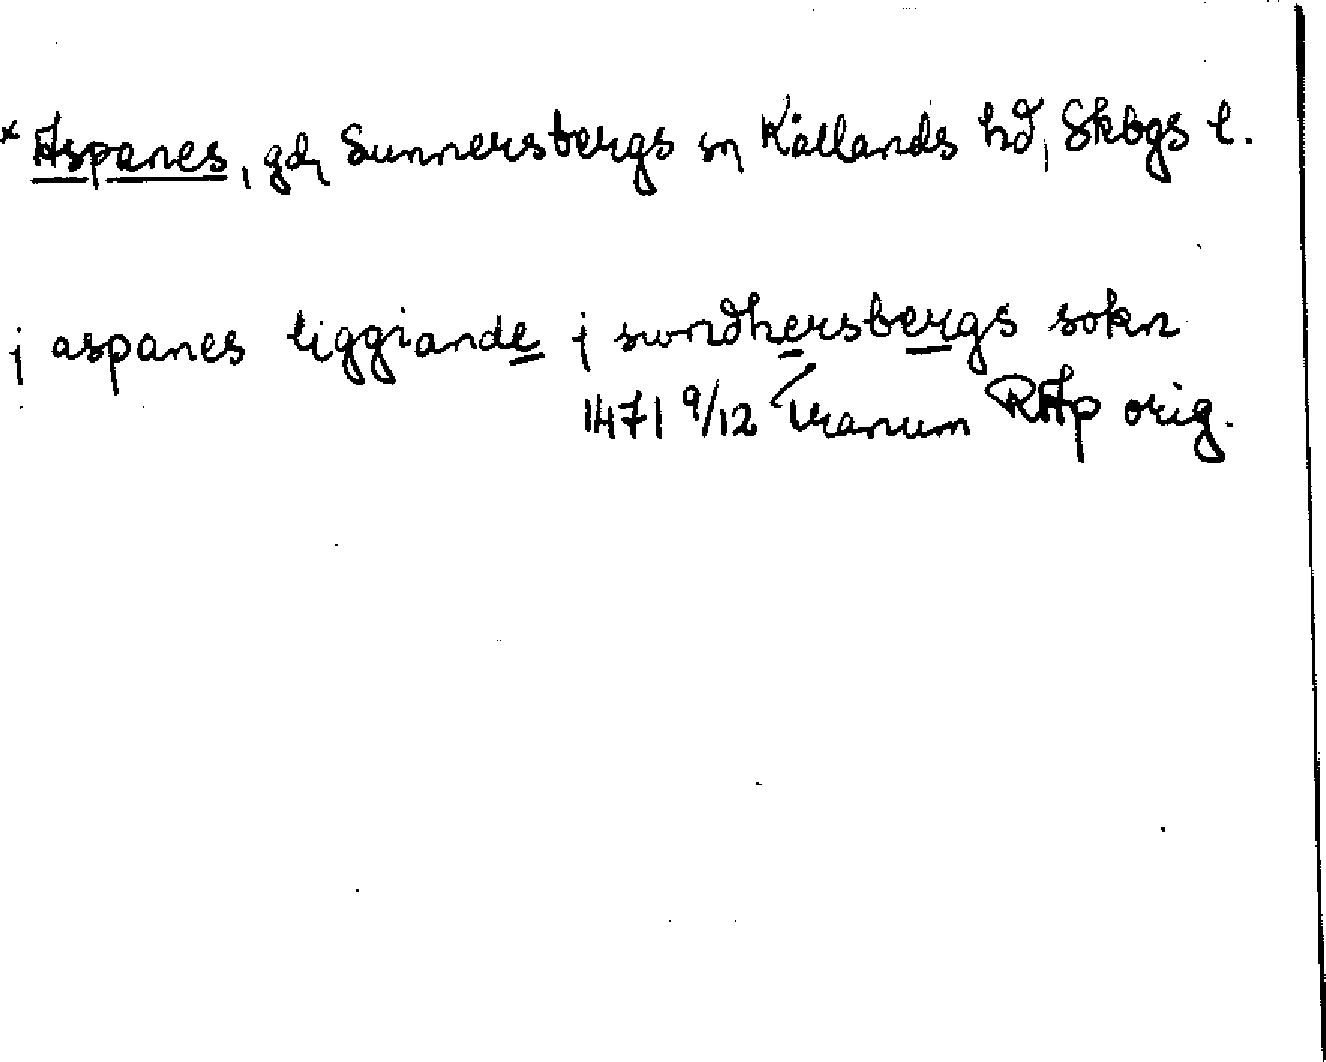 * Aspanes, gd, Sunnersbergs sn Kållands hd, Skbgs l.
j aspanes liggiande j swndhersbergs sokn
1471 9/12 Tranum RAp orig.